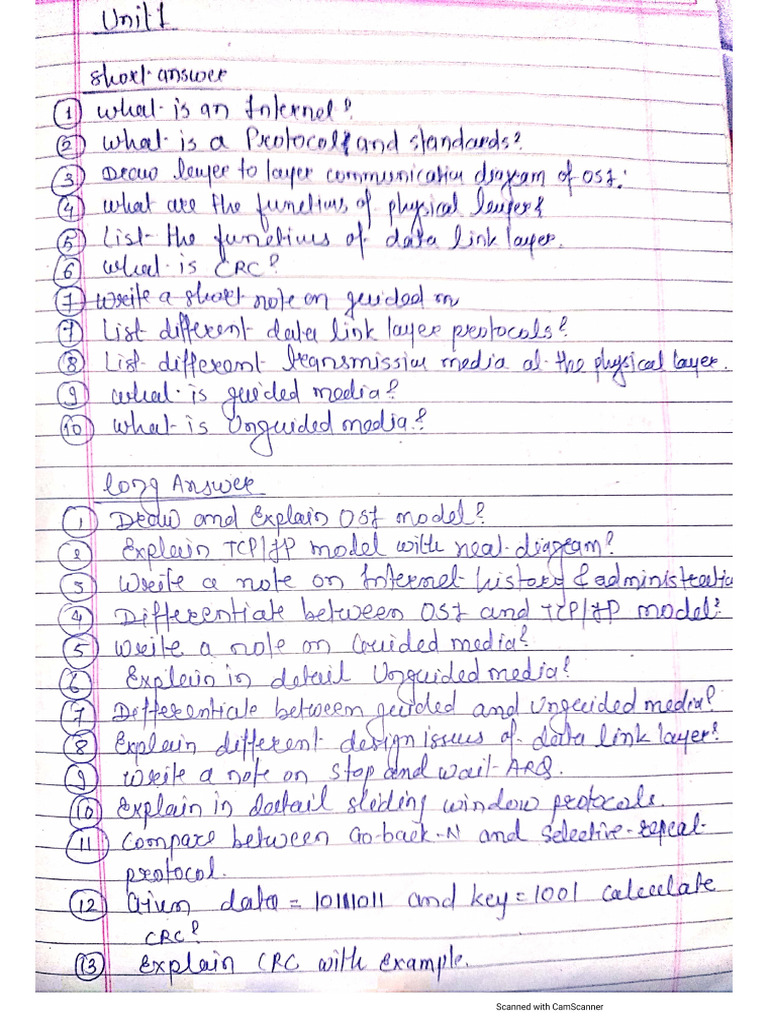 Unit 1
Short answer
① What is an Internet?
② What is a Protocol, and standards?
③ Draw layer to layer communication diagram of OSI.
④ What are the functions of physical layer?
⑤ List the functions of data link layer.
⑥ What is CRC?
⑦ Write a short note on guided m
⑦ List different data link layer protocols?
⑧ List different transmission media at the physical layer.
⑨ What is guided media?
⑩ What is Unguided media?
Long Answer
① Draw and Explain OSI model?
2 Explain TCP/IP model with neat diagram?
③ Write a note on Internet history & administratio
④ Differentiate between OSI and TCP/IP model?
⑤ Write a note on Guided media?
⑥ Explain in detail Unguided media?
⑦ Differentiate between guided and Unguided media?
⑧ Explain different design issues of data link layer?
⑨ Write a note on Stop and wait ARQ.
⑩ Explain in detail sliding window protocols.
⑪ Compare between Go-back-N and Selective-repeat
protocol.
⑫ Given data = and key = 1001 calculate
CRC?
⑬ Explain CRC with example.
Scanned with CamScanner